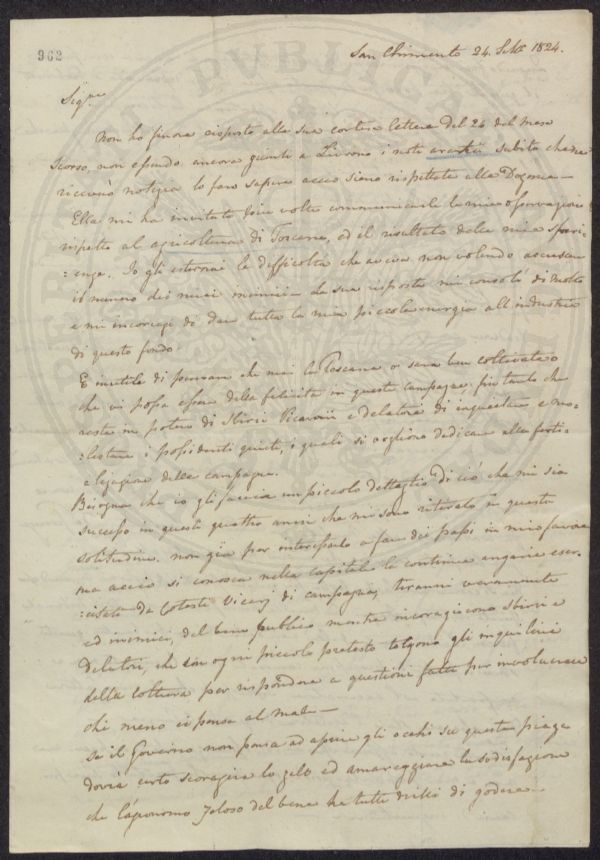 962
San Chimento 24. Sette 1824.
Sigre
Non ho finora risposto alla sua cortese lettera del 26 del mese
scorso, non essendo ancora giunti a Livorno i noti aratri subito che ne
riceverò notizia lo farò sapere acciò siano rispettate alla Dogana—
Ella mi ha invitato più volte communicarle le mie osservazioni
rispetto al agricoltura di Toscana, ed il risultato delle mie speri-
:enze. Io gli esternai le difficoltà che aveva non volendo accrescere
il numero dei miei inimici— la sua risposta mi consolò di molto
e mi incoragi di dare tutta la mia piccola energia all'industria
di questo fondo.
E inutile di pensare che mai la Toscana o sarà ben coltivata o
che vi possa essere della felicità in queste campagne, fin tanto che
resta in potere di Sbirri Vicarii e delatori di inquietare e mo-
:lestare i possidenti quieti, i quali si vogliono dedicare alla ferti-
:lizazione delle campagne.
Bisogna che io gli faccia un piccolo dettaglio di ciò che mi sia
successo in questi quattro anni che mi sono ritirato in questa
solitudine. non già per interessarlo a fare dei passi in mio favore
ma acciò si conosca nella capitale la continua angaria eser-
:citata da Cotesti Vicarj di campagna, tiranni veramente
ed inimici del bene publico mentre incoragiscono sbirri e
delatori, che con ogni piccolo pretesto tolgono gli inquilini
della coltura per rispondere a questioni fatte per involucrare
chi meno ci pensa al male—
se il Governo non pensa ad aprire gli occhi su questa piaga
dovrà certo scoragire lo zelo ed amareggiare la sodisfazione
che l'agronomo zeloso del bene ha tutti dritti di godere—